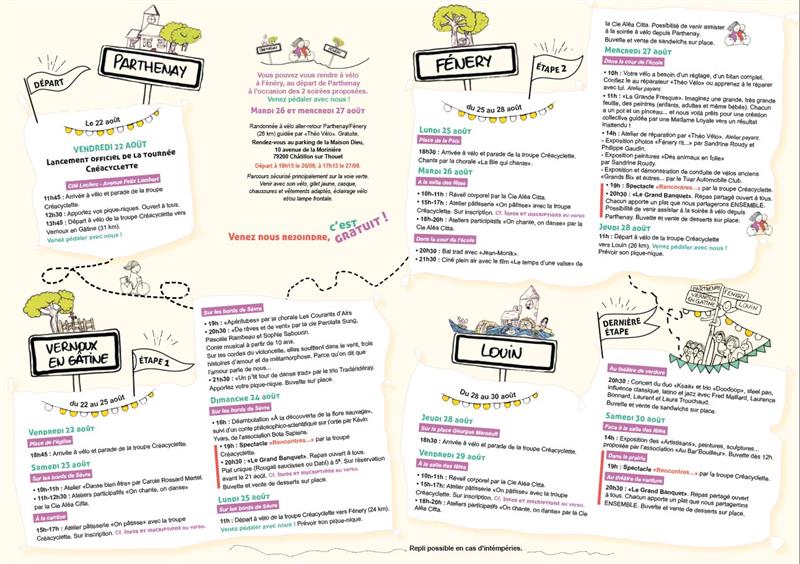 DÉPART
PARTHENAY
Le 22 août
VENDREDI 22 AOÛT
LANCEMENT OFFICIEL DE LA TOURNÉE
CRÉACYCLETTE
Cité Leclerc - Avenue Félix Lambert
11h45 : Arrivée à vélo et parade de la troupe
Créacyclette.
12h30 : Apportez vos pique-niques. Ouvert à tous.
13h45 : Départ à vélo de la troupe Créacyclette vers
Vernoux en Gâtine (31 km).
Venez pédaler avec nous !
Vous pouvez vous rendre à vélo
à Fénery, au départ de Parthenay
à l'occasion des 2 soirées proposées.
Venez pédaler avec nous !
MARDI 26 ET MERCREDI 27 AOÛT
Randonnée à vélo aller-retour Parthenay/Fénery
(26 km) guidée par «Théo Vélo». Gratuite.
Rendez-vous au parking de la Maison Dieu,
10 avenue de la Morinière
79200 Châtillon sur Thouet
Départ à 18h15 le 26/08, à 17h15 le 27/08.
Parcours sécurisé principalement sur la voie verte.
Venir avec son vélo, gilet jaune, casque,
chaussures et vêtements adaptés, éclairage vélo
et/ou lampe frontale.
Venez nous rejoindre, c'est
GRATUIT !
FÉNERY
ÉTAPE 2
du 25 au 28 août
LUNDI 25 AOÛT
Place de la Paix
18h30 : Arrivée à vélo et parade de la troupe Créacyclette.
Chants par la chorale «La Ble qui chante».
MARDI 26 AOÛT
A la salle des fêtes
• 10h-11h : Réveil corporel par la Cie Aléa Citta.
• 15h-17h : Atelier pâtisserie «On pâtisse» avec la troupe
Créacyclette. Sur inscription. Cf. infos et inscriptions au verso.
• 18h-20h : Ateliers participatifs «On chante, on danse» par la
Cie Aléa Citta.
Dans la cour de l'école
• 20h30 : Bal trad avec «Jean-Monik».
• 21h30 : Ciné plein air avec le film «Le temps d'une valse» de
la Cie Aléa Citta. Possibilité de venir assister
à la soirée à vélo depuis Parthenay.
Buvette et vente de sandwichs sur place.
MERCREDI 27 AOÛT
Dans la cour de l'école
• 10h : Votre vélo a besoin d'un réglage, d'un bilan complet.
Confiez le au réparateur «Théo Vélo» ou apprenez à le réparer
avec lui. Atelier payant.
• 11h : «La Grande Fresque». Imaginez une grande, très grande
feuille, des peintres (enfants, adultes et même bébés). Chacun
un pot et un pinceau... et nous voilà prêts pour une création
collective guidée par une Madame Loyale vers un résultat
inattendu !
• 14h : Atelier de réparation par «Théo Vélo». Atelier payant.
- Exposition photos «Fénery rit...» par Sandrine Roudy et
Philippe Gaudin.
- Exposition peintures «Des animaux en folie»
par Sandrine Roudy.
- Exposition et démonstration de conduite de vélos anciens
«Grands Bi» et autres... par le Tuar Automobile Club.
• 19h : Spectacle «Rencontres...» par la troupe Créacyclette.
• 20h30 : «Le Grand Banquet». Repas partagé ouvert à tous.
Chacun apporte un plat que nous partagerons ENSEMBLE.
Possibilité de venir assister à la soirée à vélo depuis
Parthenay. Buvette et vente de desserts sur place.
JEUDI 28 AOÛT
11h : Départ à vélo de la troupe Créacyclette
vers Louin (26 km). Venez pédaler avec nous !
Prévoir son pique-nique.
VERNOUX
EN GÂTINE
ÉTAPE 1
du 22 au 25 août
VENDREDI 22 AOÛT
Place de l'église
18h45 : Arrivée à vélo et parade de la troupe Créacyclette.
SAMEDI 23 AOÛT
Sur les bords de Sèvre
• 10h-11h : Atelier «Danse bien être» par Carole Rossard Martel.
• 11h-12h30 : Ateliers participatifs «On chante, on danse»
par la Cie Aléa Citta.
A la cantine
15h-17h : Atelier pâtisserie «On pâtisse» avec la troupe
Créacyclette. Sur inscription. Cf. infos et inscriptions au verso.
Sur les bords de Sèvre
• 19h : «Apéritubes» par la chorale Les Courants d'Airs
• 20h30 : «De rêves et de vent» par la cie Parolata Sung,
Pascale Rambeau et Sophie Sabourin.
Conte musical à partir de 10 ans.
Sur les cordes du violoncelle, elles soufflent dans le vent, trois
histoires d'amour et de métamorphose. Parce qu'on dit que
l'amour parle de nous...
• 21h : «Un p'tit tour de danse trad» par le trio Tradéridéray.
Apportez votre pique-nique. Buvette sur place.
DIMANCHE 24 AOÛT
Sur les bords de Sèvre
• 16h : Déambulation «À la découverte de la flore sauvage»,
suivi d'un conte philosophico-scientifique sur l'ortie par Kévin
Yvers, de l'association Bota Sapiens.
• 19h : Spectacle «Rencontres...» par la troupe
Créacyclette.
• 20h30 : «Le Grand Banquet». Repas ouvert à tous.
Plat unique (Rougail saucisses ou Dahl) à 5€. Sur réservation
avant le 21 août. Cf. infos et inscriptions au verso.
Buvette et vente de desserts sur place.
LUNDI 25 AOÛT
Sur les bords de Sèvre
11h : Départ à vélo de la troupe Créacyclette vers Fénery (24 km).
Venez pédaler avec nous ! Prévoir son pique-nique.
LOUIN
PARTHENAY
VERNOUX
EN GÂTINE
FÉNERY
LOUIN
DERNIÈRE
ÉTAPE
Du 28 au 30 août
JEUDI 28 AOÛT
Sur la place Georges Mersault
18h30 : Arrivée à vélo et parade de la troupe Créacyclette.
VENDREDI 29 AOÛT
A la salle des fêtes
• 10h-11h : Réveil corporel par la Cie Aléa Citta.
• 15h-17h : Atelier pâtisserie «On pâtisse» avec la troupe
Créacyclette. Sur inscription. Cf. infos et inscriptions au verso.
• 18h-20h : Ateliers participatifs «On chante, on danse» par la Cie
Aléa Citta.
Au théâtre de verdure
20h30 : Concert du duo «Ksaã» et trio «Doodoop», steel pan,
influence classique, latino et jazz avec Fred Maillard, Laurence
Bonnard, Laurent et Laura Trouchaud.
Buvette et vente de sandwichs sur place.
SAMEDI 30 AOÛT
Face à la salle des fêtes
14h : Exposition des «Artistisans», peintures, sculptures...
proposée par l'association «Au Bar'Bouilleur». Buvette dès 12h.
Dans la prairie
19h : Spectacle «Rencontres...» par la troupe Créacyclette.
Au théâtre de verdure
20h30 : «Le Grand Banquet». Repas partagé ouvert
à tous. Chacun apporte un plat que nous partagerons
ENSEMBLE. Buvette et vente de desserts sur place.
Repli possible en cas d'intempéries.